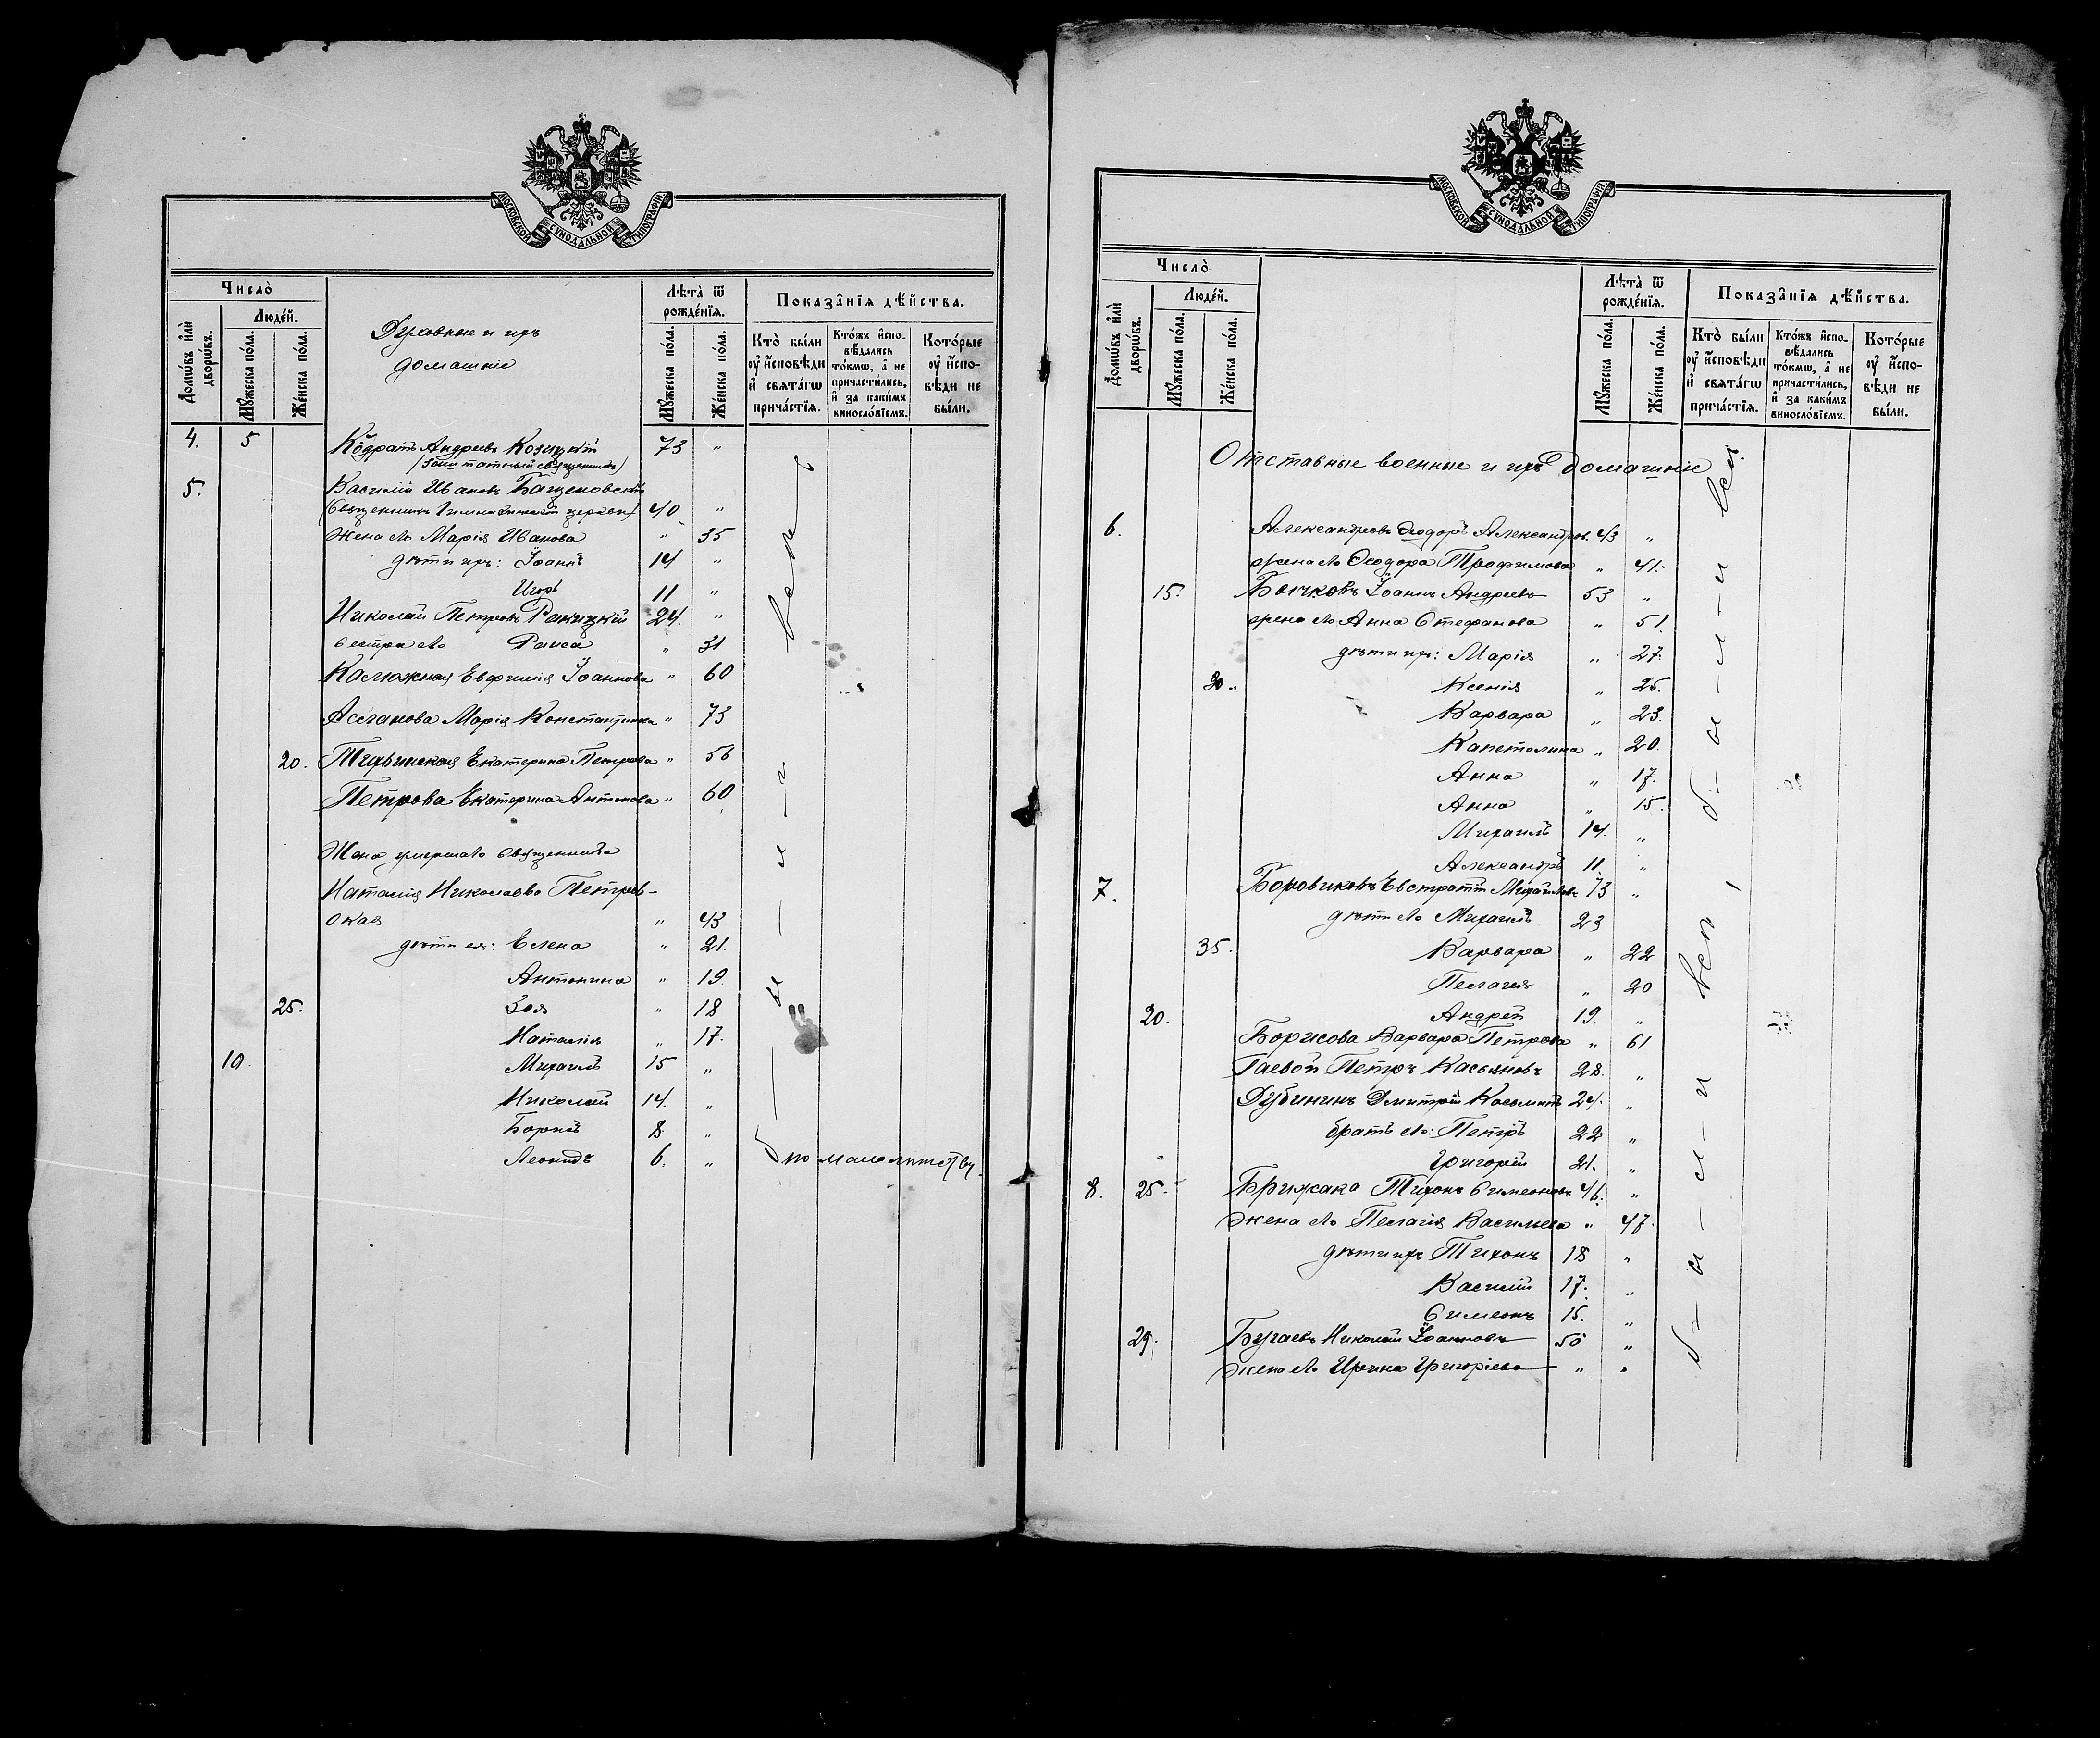 МОСКОВСКОЙ СУНОДАЛЬНОЙ ТИПОГРАФІИ
Число̀
Домѡ́въ и҆лѝ дворѡ́въ.
Люде́й.
Мꙋ́жеска по́ла.
Же́нска по́ла.
Духовные и ихъ
домашніе
Лѣ́та ѿ рожде́нїѧ.
Мꙋ́жеска по́ла.
Же́нска по́ла.
Показа̑нїѧ дѣ́йства.
Кто̀ бы́ли оу҆ и҆сповѣ́ди и҆ свѧта́гѡ прича́стїѧ.
Кто́жъ и҆сповѣ́дались то́кмѡ, а҆ не причасти́лись, и҆ за каки́мъ винословїемъ.
Кото́рые оу҆ и҆сповѣ́ди не бы́ли.
4. 5 Кодратъ Андреевъ Козицкій 73 "
(Заштатный священникъ)
5. Василій Ивановъ
(Священникъ Гимназическ. церкви) 40 "
Жена его Марія Иванова " 35
дѣти ихъ: Іоаннъ 14 "
Игорь 11 "
Николай Петровъ 24. "
сестра его Раиса " 31
Калюжная Евфимія Іоаннова " 60
Марія Константинова " 73
20. Екатерина Петрова " 56
Петрова Екатерина Антонова " 60
Жена умершаго священника
Наталія Николаева Петров-
ская " 43
дѣти ея: Елена " 21.
Антонина " 19
25. Зоя " 18
Наталія " 17.
10. Михаилъ 15 "
Николай 14. "
Борисъ 8. "
Леонидъ 6. " по малолѣтству.
были всѣ
МОСКОВСКОЙ СУНОДАЛЬНОЙ ТИПОГРАФІИ
Число̀
Домѡ́въ и҆лѝ дворѡ́въ.
Люде́й.
Мꙋ́жеска по́ла.
Же́нска по́ла.
Лѣ́та ѿ рожде́нїѧ.
Мꙋ́жеска по́ла.
Же́нска по́ла.
Показа̑нїѧ дѣ́йства.
Кто̀ бы́ли оу҆ и҆сповѣ́ди и҆ свѧта́гѡ прича́стїѧ.
Кто́жъ и҆сповѣ́дались то́кмѡ, а҆ не причасти́лись, и҆ за каки́мъ винословїемъ.
Кото́рые оу҆ и҆сповѣ́ди не бы́ли.
Отставные военные и ихъ домашніе
6. Александровъ Ѳеодоръ Александров. 43 "
жена его Ѳеодора Трофимова " 41.
15. Бычковъ Іоаннъ Андреевъ 53 "
жена его Анна Стефанова " 51.
дѣти ихъ: Марія " 27.
30 " Ксенія " 25.
Варвара " 23.
Капетолина " 20.
Анна " 17.
Анна " 15.
Михаилъ 14. "
Александръ 11. "
7. Боровиковъ Евстратій Михайловъ 73 "
дѣти его Михаилъ 23
35. Варвара " 22
Пелагія " 20
20. Андрей 19. "
Борисова Варвара Петрова " 61
Гаевой Петръ Касьяновъ 28. "
Дубининъ Дмитрій Косьминъ 24. "
братъ его: Петръ 22 "
Григорій 21. "
8. 25. Брижака Тихонъ Симеоновъ 46. "
жена его Пелагія Васильева " 47.
дѣти ихъ Тихонъ 18 "
Василій 17. "
Симеонъ 15. "
29. Бугаевъ Николай Іоанновъ 50 "
жена его Ирина Григоріева " "
были всѣ
были всѣ